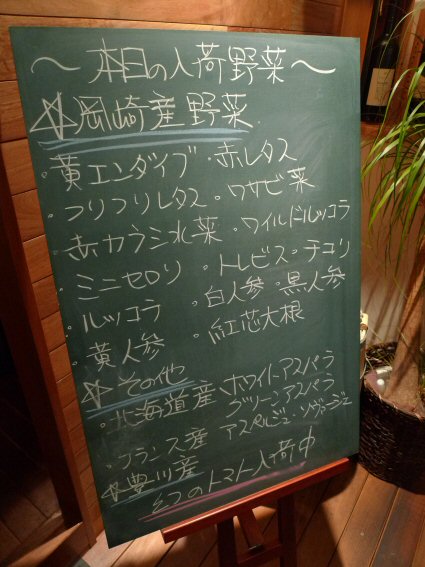 ～本日の入荷野菜～
☆岡崎産野菜
・黄エンダイブ・赤レタス
・フリフリレタス・ワサビ菜
・赤カラシ水菜・ワイルドルッコラ
・ミニセロリ・トレビス・チコリ
・ルッコラ・白人参・黒人参
・黄人参・紅芯大根
☆その他
・北海道産 ホワイトアスパラ
グリーンアスパラ
・フランス産 アスペルジュ・ソヴァージュ
☆豊川産
幻のトマト入荷中